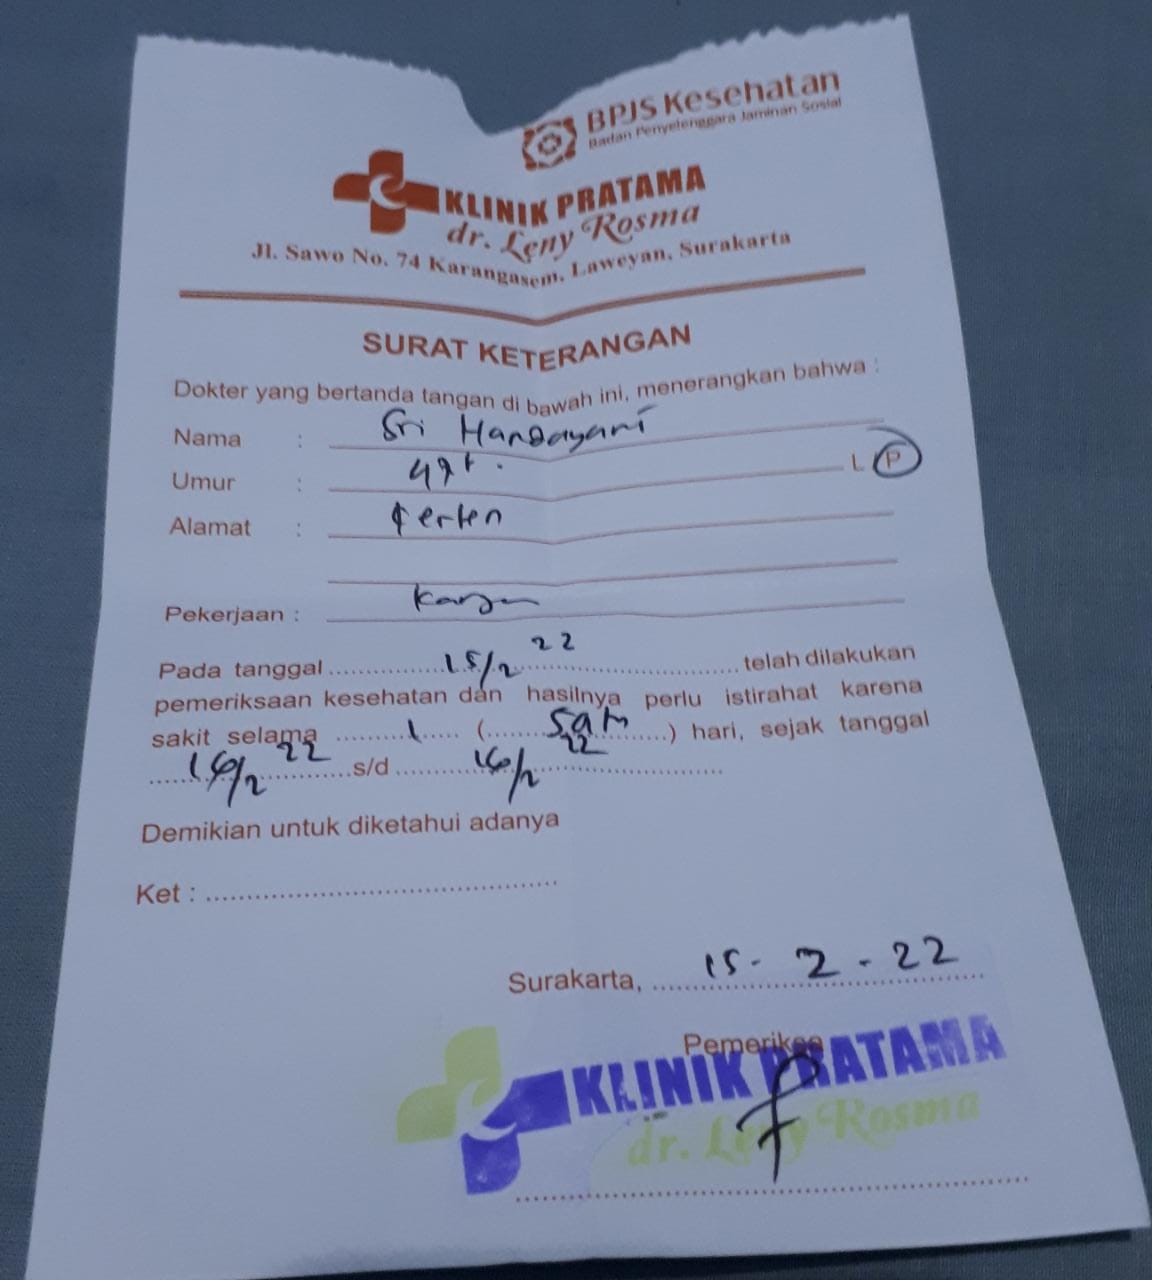 BPJS Kesehatan
Badan Penyelenggara Jaminan Sosial
KLINIK PRATAMA
dr. Leny Rosma
Jl. Sawo No. 74 Karangasem, Laweyan, Surakarta
SURAT KETERANGAN
Dokter yang bertanda tangan di bawah ini, menerangkan bahwa :
Nama : Sri Handayani
Umur : L / P
Alamat : Kerten
Pekerjaan :
Pada tanggal 15/2 22 telah dilakukan
pemeriksaan kesehatan dan hasilnya perlu istirahat karena
sakit selama 1 ( satu ) hari, sejak tanggal
16/2 22 s/d 16/2 22
Demikian untuk diketahui adanya
Ket :
Surakarta, 15 - 2 - 22
Pemeriksa
KLINIK PRATAMA
dr. Leny Rosma